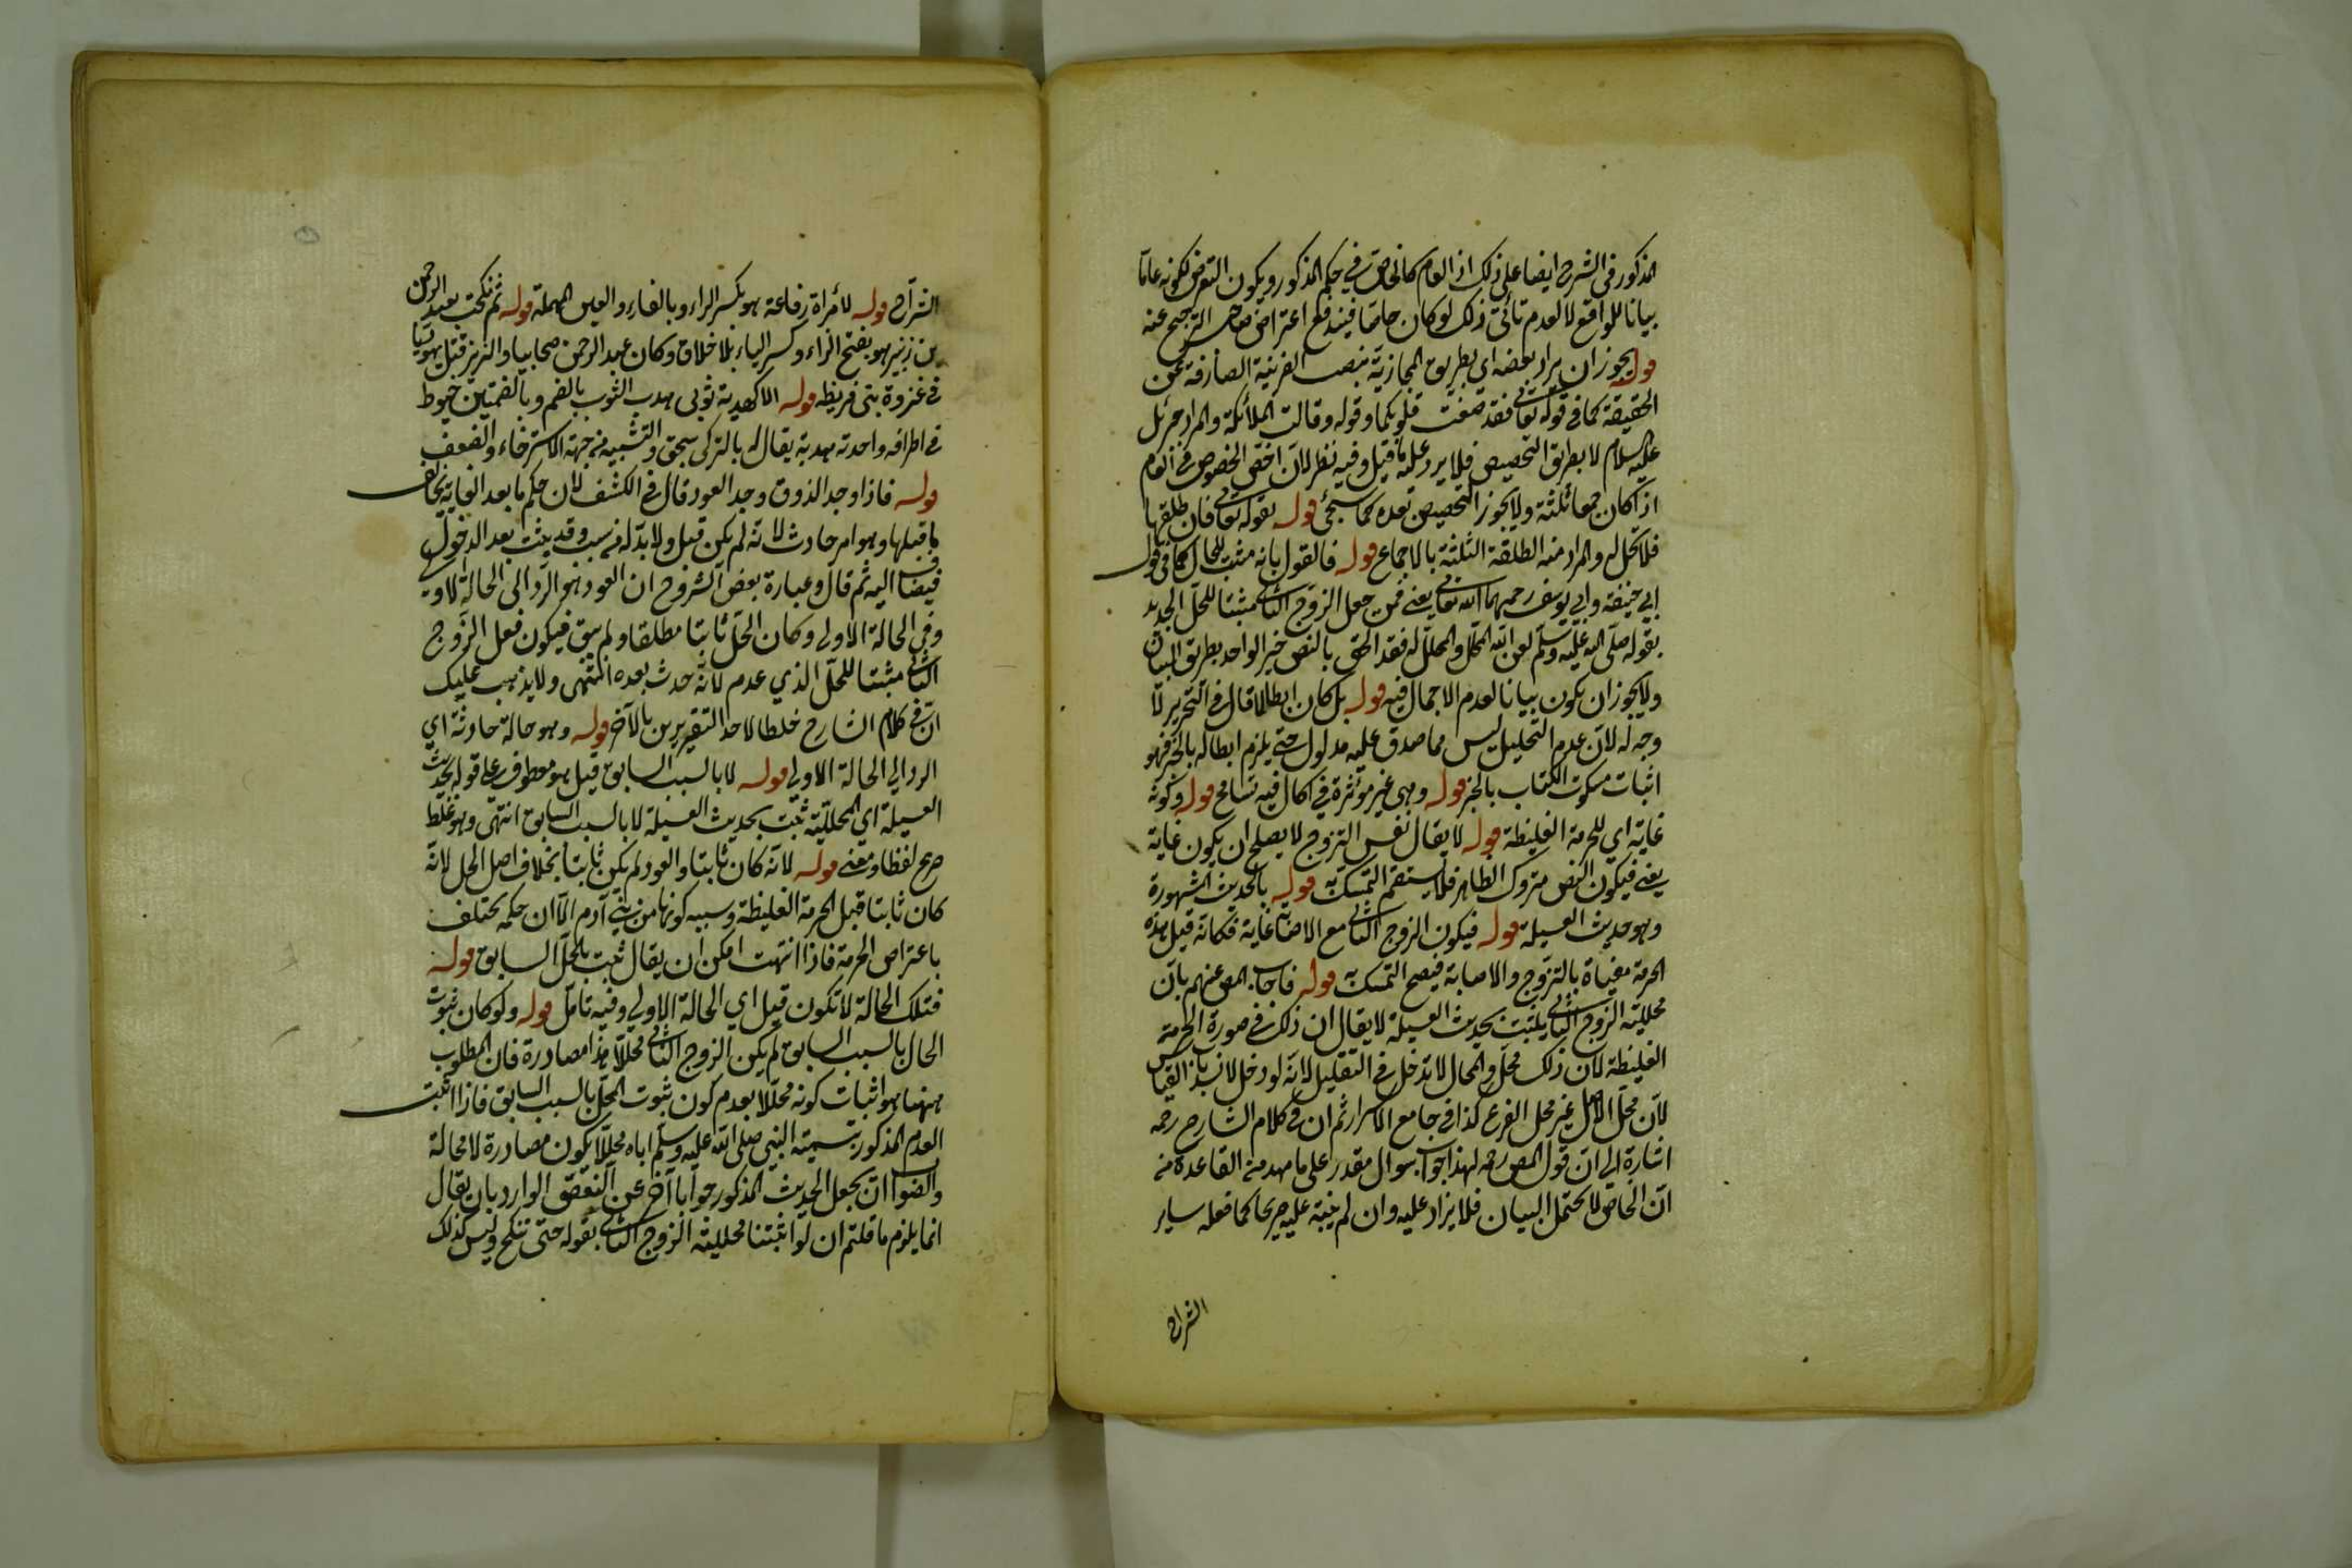 المذكور في الشرح ايضا على ذلك اذ العام كالخاص في حكم المذكور ويكون التعرض لكونه عاما
بيانا للواقع لا لعدم تأتى ذلك لو كان خاصا فيندفع اعتراض صاحب الترجيح عنه
قوله يجوز ان يراد بعضه اي بطريق المجازية بنصب القرينة الصارفة عن
الحقيقة كما في قوله تعالى فقد صغت قلوبكما وقوله وقالت الملائكة والمراد جبرئل
عليه السلام لا بطريق التخصيص فلا يرد عليه ما قيل وفيه نظر لان اخص الخصوص في العام
اذا كان جمعا ثلثة ولا يجوز التخصيص بعده كما سيجئ قوله بقوله تعالى فان طلقها
فلا تحل له والمراد منه الطلقة الثلثة بالاجماع قوله فالقول بانه مثبت للحال كما في قول
ابي حنيفة وابي يوسف رحمهما الله تعالى يعني فمن جعل الزوج الثاني مثبتا للحل الجديد
بقوله صلى الله عليه وسلم لعن الله المحلل والمحلل له فقد الحق بالنص خبر الواحد بطريق البيان
ولا يجوز ان يكون بيانا لعدم الاجمال فيه قوله بل كان ابطالا قال في التحرير لا
وجه له لان عدم التحليل ليس مما صدق عليه مدلول حتى يلزم ابطاله بالخبر فهو
اثبات مسكوت الكتاب بالخبر قوله وهي غير مؤثرة في اكال فيه تسامح قوله وكونه
غاية اي للحرمة الغليظة قوله لا يقال نفس التزوج لا يصلح ان يكون غاية
يعني فيكون النص متروك الظاهر فلا يستقيم التمسك به قوله بالحديث المشهورة
وهو حديث العسيلة قوله فيكون الزوج الثاني مع الاصابة غاية فكانه قيل هذه
الحرمة مغياة بالتزوج والاصابة فيصح التمسك به قوله فاجاب المص عنهم بان
محللية الزوج الثاني يثبت بحديث العسيلة لا يقال ان ذلك في صورة الحرمة
الغليظة لان ذلك محل والمحال لا تدخل في التعليل لانه لو دخل لانسد باب القياس
لان محل الاصل غير محل الفرع كذا في جامع الاسرار ثم ان في كلام الشارح رحمه
اشارة الى ان قول المص رحمه لهذا جواب سوال مقدر على ما مهد من القاعدة من
ان الخاص لا يحتمل البيان فلا يزاد عليه وان لم ينبه عليه صريحا كما فعله ساير
الشراح
الشراح قوله لامراة رفاعة هو بكسر الراء وبالفاء والعين المهملة قوله ثم نكحت بعبد الرحمن
بن زبير هو بفتح الزاء وكسر الباء بلا خلاف وكان عبد الرحمن صحابيا والزبير قتل يهوديا
في غزوة بني قريظه قوله الا كهدبة ثوبى هدب الثوب بالضم وبالضمتين خيوط
في اطرافه واحدته هدبة يقال له بالتركى سجق والتشبيه من جهة الاسترخاء والضعف
قوله فاذا وجد الذوق وجد العود قال في الكشف لان حكم ما بعد الغاية يخالف
ما قبلها وهو امر حادث لانه لم يكن قبل ولا بد له من سبب وقد يثبت بعد الدخول
فيضاف اليه ثم قال وعبارة بعض الشروح ان العود هو الرد الى الحالة الاولى
وفي الحالة الاولى وكان الحل ثابتا مطلقا ولم يبق فيكون فعل الزوج
الثاني مثبتا للحل الذي عدم لانه حدث بعده انتهى ولا يذهب عليك
ان في كلام الشارح خلطا لاحد التقريرين بالآخر قوله وهو حالة حادثة اي
الرد الى الحالة الاولى قوله لا بالسبب السابق قيل هو معطوف على قوله بحديث
العسيلة اي المحللية ثبت بحديث العسيلة لا بالسبب السابق انتهى وهو غلط
صريح لفظا ومعنى قوله لانه كان ثابتا والعود لم يكن ثابتا بخلاف اصل الحل لانه
كان ثابتا قبل الحرمة الغليظة وسببه كونها من بني آدم الا ان حكمه يختلف
باعتراض الحرمة فاذا انتهت امكن ان يقال ثبت بالحل السابق قوله
فتلك الحالة لا تكون قيل اي الحالة الاولى وفيه تامل قوله ولو كان ثبوت
الحال بالسبب السابق لم يكن الزوج الثاني محللا هذا مصادرة فان المطلوب
ههنا هو اثبات كونه محللا بعدم كون ثبوت الحل بالسبب السابق فاذا اثبت
العدم المذكور بتسمية النبي صلى الله عليه وسلم اياه محللا يكون مصادرة لا محالة
والصواب ان يجعل الحديث المذكور جوابا آخر عن النقض الوارد بان يقال
انما يلزم ما قلتم ان لو اثبتنا محللية الزوج الثاني بقوله حتى تنكح وليس كذلك